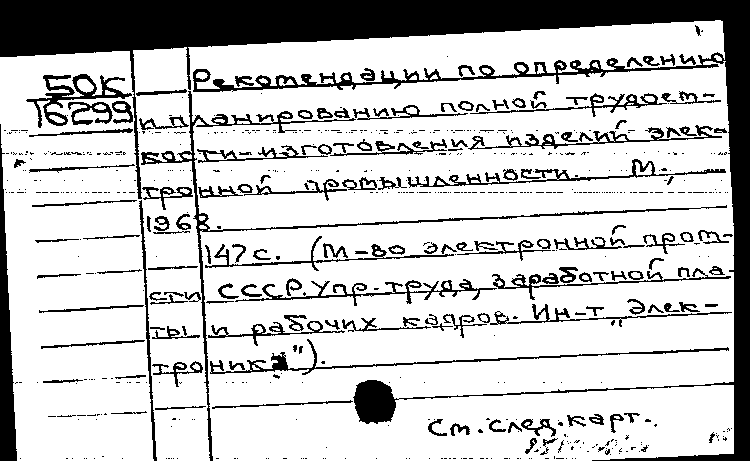 50К
16299
Рекомендации по определению
и планированию полной трудоем-
кости изготовления изделий элек-
тронной промышленности. М.,
1968.
147 с. (М-во электронной пром-
сти СССР. Упр. труда, заработной пла-
ты и рабочих кадров. Ин-т "Элек-
троника").
См. след. карт.